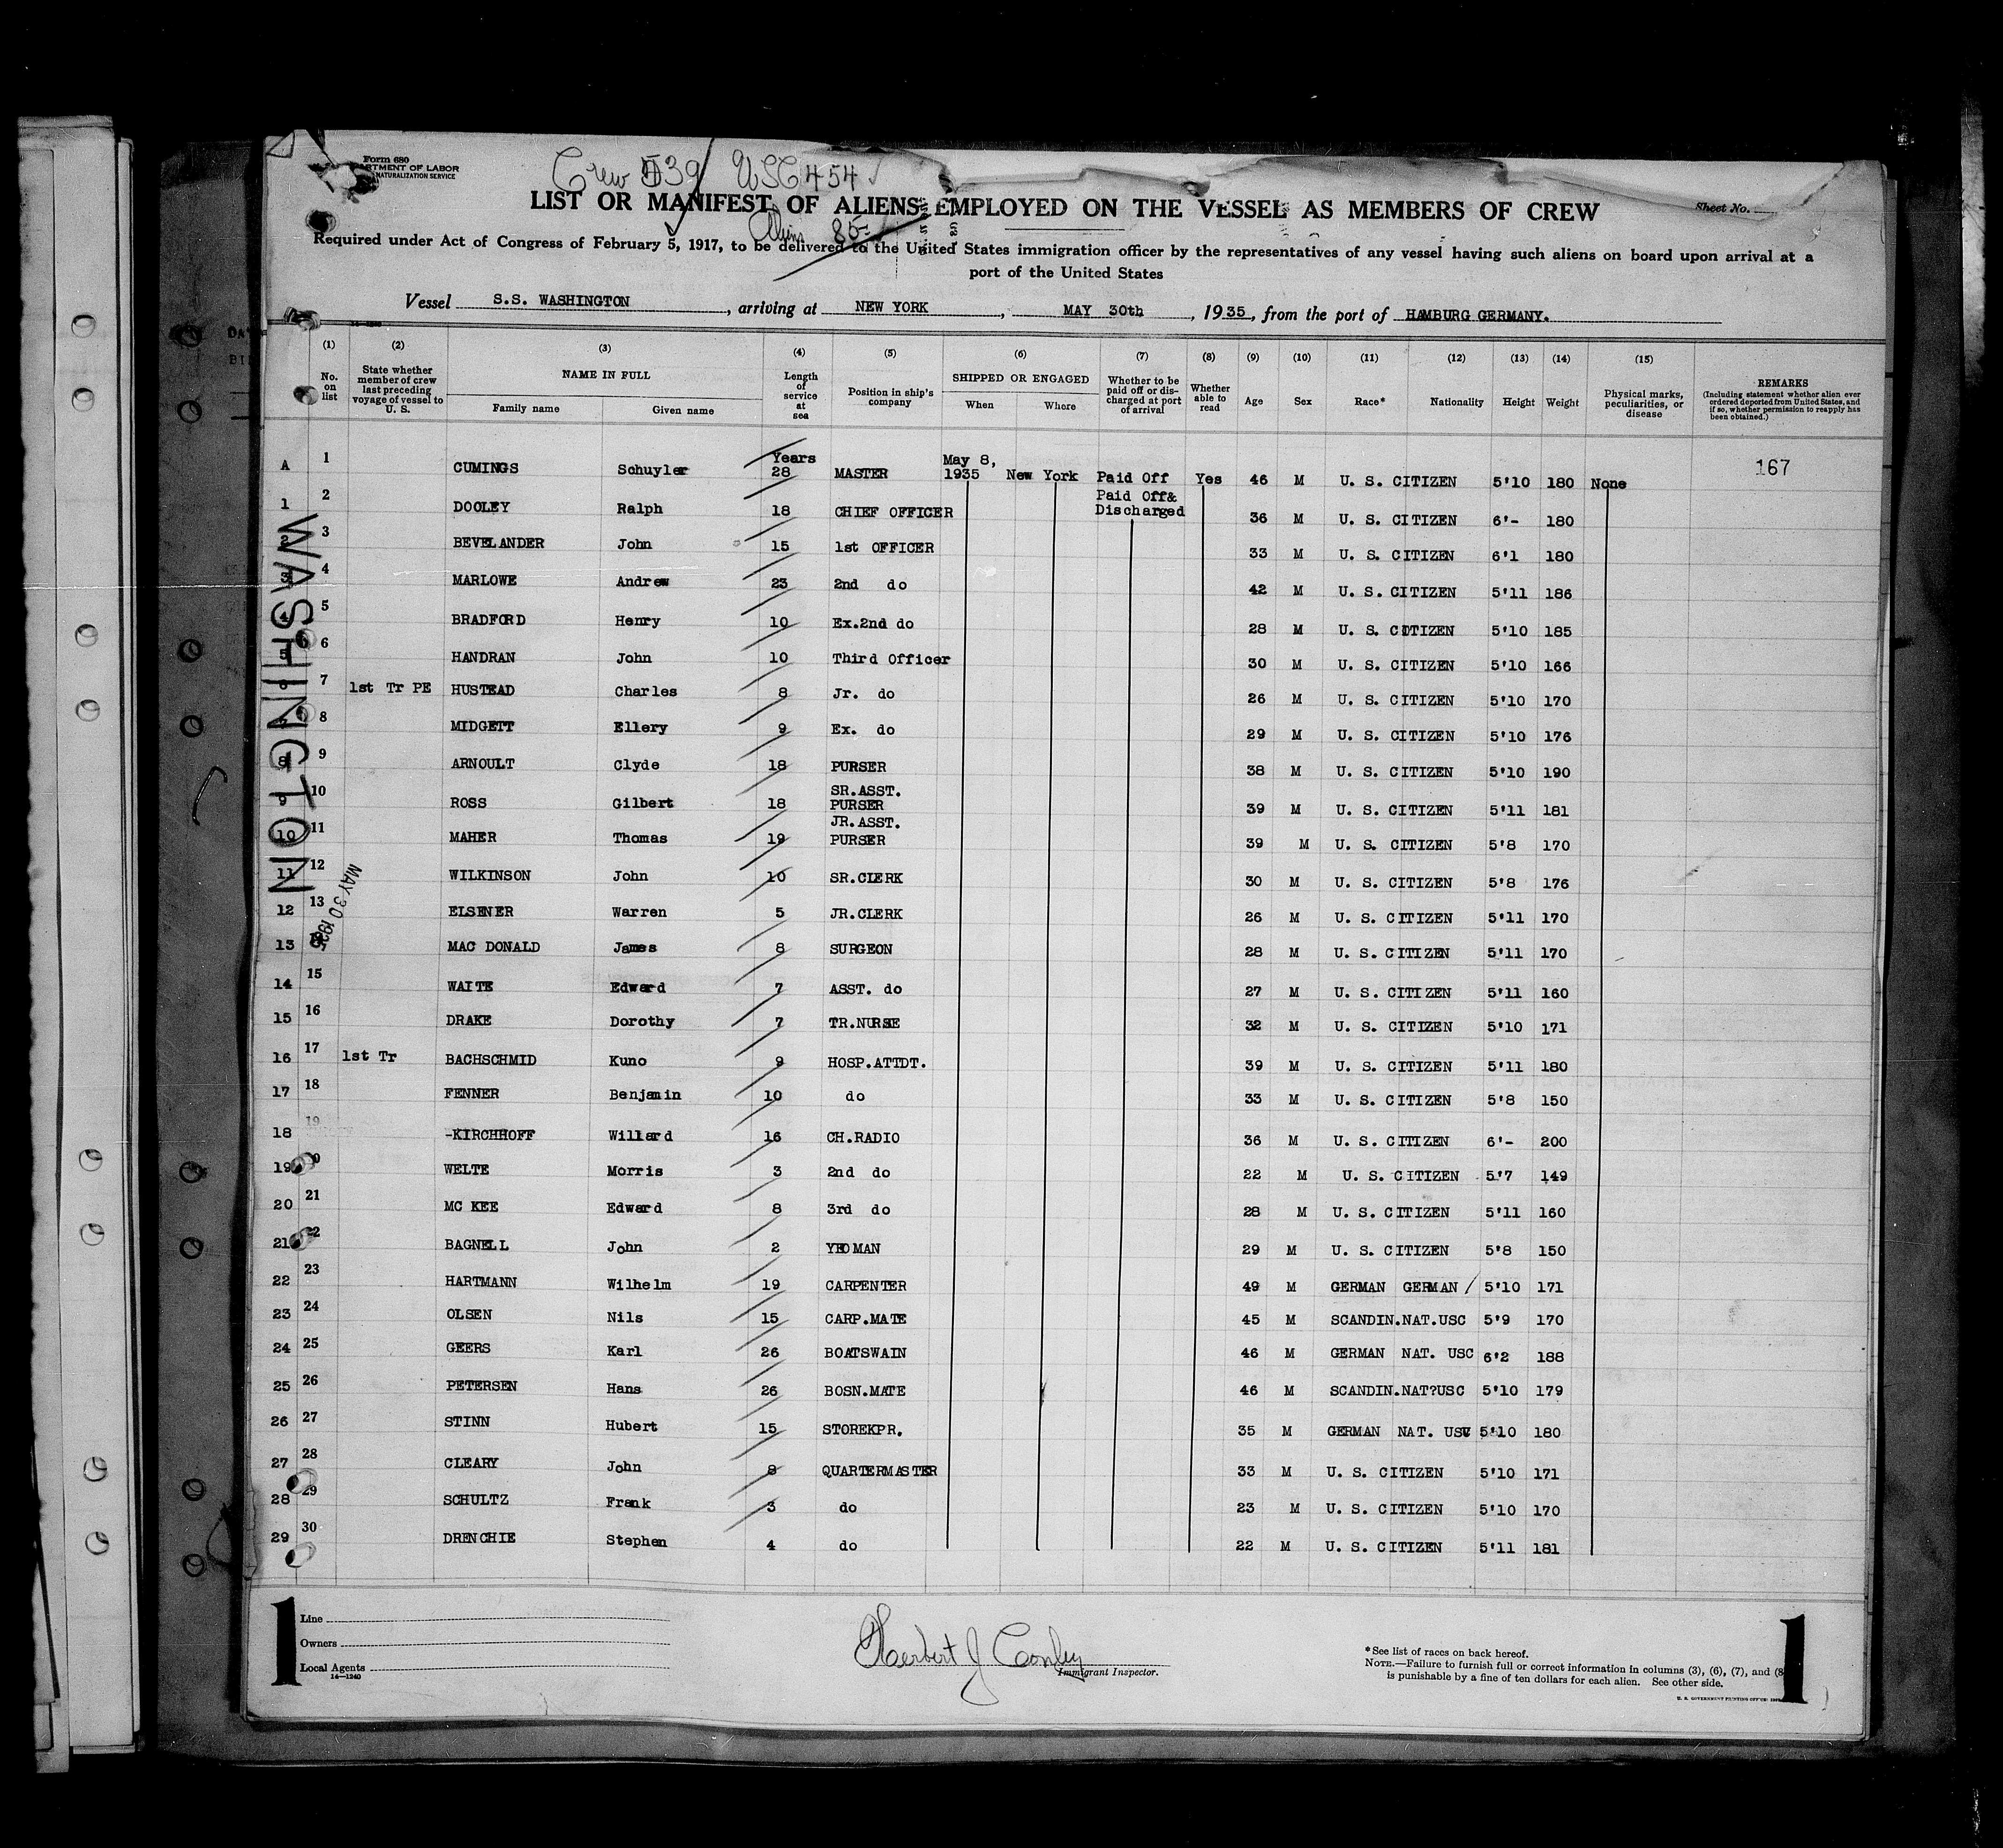 Form 680
DEPARTMENT OF LABOR
NATURALIZATION SERVICE
Crew 539 USC 454
Aliens 85
LIST OR MANIFEST OF ALIENS EMPLOYED ON THE VESSEL AS MEMBERS OF CREW
Sheet No.
Required under Act of Congress of February 5, 1917, to be delivered to the United States immigration officer by the representatives of any vessel having such aliens on board upon arrival at a
port of the United States
Vessel S.S. WASHINGTON, arriving at NEW YORK, MAY 30th, 1935, from the port of HAMBURG GERMANY.
(1) No. on list (2) State whether member of crew last preceding voyage of vessel to U. S. (3) NAME IN FULL Family name Given name (4) Length of service at sea (5) Position in ship's company (6) SHIPPED OR ENGAGED When Where (7) Whether to be paid off or discharged at port of arrival (8) Whether able to read (9) Age (10) Sex (11) Race* (12) Nationality (13) Height (14) Weight (15) Physical marks, peculiarities, or disease REMARKS (Including statement whether alien ever ordered deported from United States, and if so, whether permission to reapply has been obtained.)
A 1 CUMINGS Schuyler Years 28 MASTER May 8, 1935 New York Paid Off Yes 46 M U. S. CITIZEN 5'10 180 None 167
1 2 DOOLEY Ralph 18 CHIEF OFFICER Paid Off& Discharged 36 M U. S. CITIZEN 6'- 180
2 3 BEVELANDER John 15 1st OFFICER 33 M U. S. CITIZEN 6'1 180
3 4 MARLOWE Andrew 23 2nd do 42 M U. S. CITIZEN 5'11 186
4 5 BRADFORD Henry 10 Ex.2nd do 28 M U. S. CITIZEN 5'10 185
5 6 HANDRAN John 10 Third Officer 30 M U. S. CITIZEN 5'10 166
6 7 1st Tr PE HUSTEAD Charles 8 Jr. do 26 M U. S. CITIZEN 5'10 170
7 8 MIDGETT Ellery 9 Ex. do 29 M U. S. CITIZEN 5'10 176
8 9 ARNOULT Clyde 18 PURSER 38 M U. S. CITIZEN 5'10 190
9 10 ROSS Gilbert 18 SR.ASST. PURSER 39 M U. S. CITIZEN 5'11 181
10 11 MAHER Thomas 19 JR.ASST. PURSER 39 M U. S. CITIZEN 5'8 170
11 12 WILKINSON John 10 SR.CLERK 30 M U. S. CITIZEN 5'8 176
12 13 ELSENER Warren 5 JR.CLERK 26 M U. S. CITIZEN 5'11 170
13 MAC DONALD James 8 SURGEON 28 M U. S. CITIZEN 5'11 170
14 15 WAITE Edward 7 ASST. do 27 M U. S. CITIZEN 5'11 160
15 16 DRAKE Dorothy 7 TR.NURSE 32 M U. S. CITIZEN 5'10 171
16 17 1st Tr BACHSCHMID Kuno 9 HOSP.ATTDT. 39 M U. S. CITIZEN 5'11 180
17 18 FENNER Benjamin 10 do 33 M U. S. CITIZEN 5'8 150
18 19 -KIRCHHOFF Willard 16 CH.RADIO 36 M U. S. CITIZEN 6'- 200
19 WELTE Morris 3 2nd do 22 M U. S. CITIZEN 5'7 149
20 21 MC KEE Edward 8 3rd do 28 M U. S. CITIZEN 5'11 160
21 22 BAGNELL John 2 YEOMAN 29 M U. S. CITIZEN 5'8 150
22 23 HARTMANN Wilhelm 19 CARPENTER 49 M GERMAN GERMAN / 5'10 171
23 24 OLSEN Nils 15 CARP.MATE 45 M SCANDIN.NAT.USC 5'9 170
24 25 GEERS Karl 26 BOATSWAIN 46 M GERMAN NAT. USC 6'2 188
25 26 PETERSEN Hans 26 BOSN.MATE 46 M SCANDIN.NAT?USC 5'10 179
26 27 STINN Hubert 15 STOREKPR. 35 M GERMAN NAT. USC 5'10 180
27 28 CLEARY John 8 QUARTERMASTER 33 M U. S. CITIZEN 5'10 171
28 29 SCHULTZ Frank 3 do 23 M U. S. CITIZEN 5'10 170
29 30 DRENCHIE Stephen 4 do 22 M U. S. CITIZEN 5'11 181
WASHINGTON
MAY 30 1935
1
Line
Owners
Local Agents
14-1240
Herbert J Conley
Immigrant Inspector.
*See list of races on back hereof.
NOTE.—Failure to furnish full or correct information in columns (3), (6), (7), and (8
is punishable by a fine of ten dollars for each alien. See other side.
U. S. GOVERNMENT PRINTING OFFICE:
1